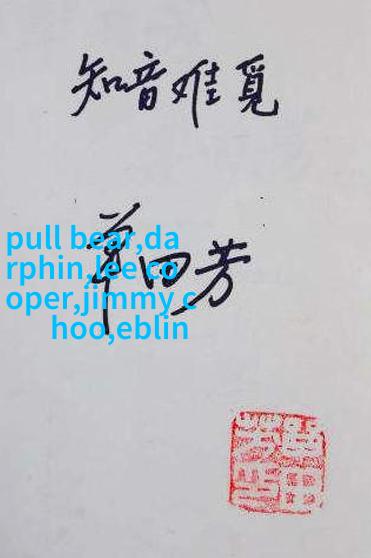 知音难觅
单田芳
pull bear,da
rphin,lee co
oper,jimmy c
hoo,eblin